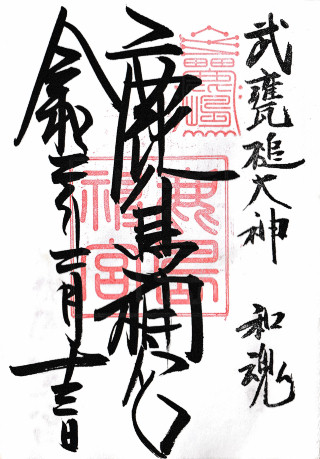 武甕槌大神 和魂
鹿島神宮
令和二年十二月十三日
鹿島
神宮